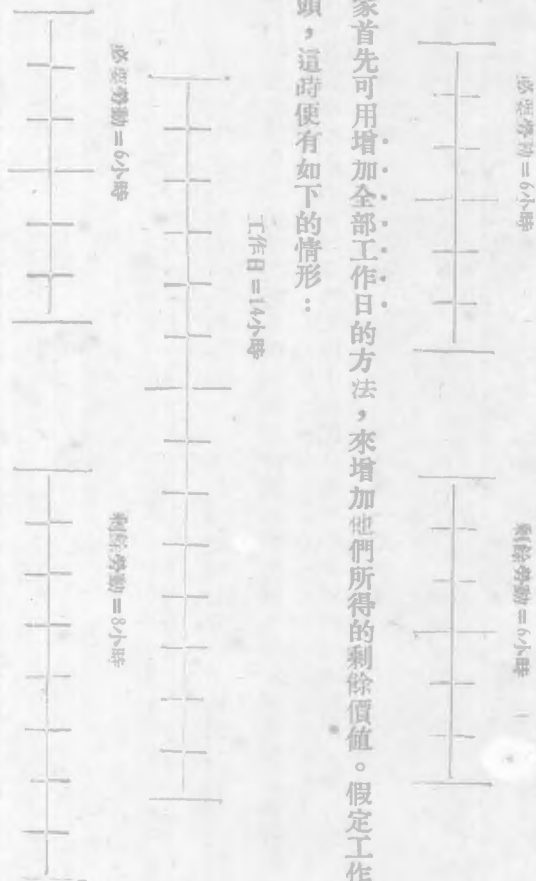 必要勞動＝6小時
剩餘勞動＝6小時
家首先可用增加全部工作日的方法，來增加他們所得的剩餘價值。假定工作
頭，這時便有如下的情形：
工作日＝14小時
必要勞動＝6小時
剩餘勞動＝8小時